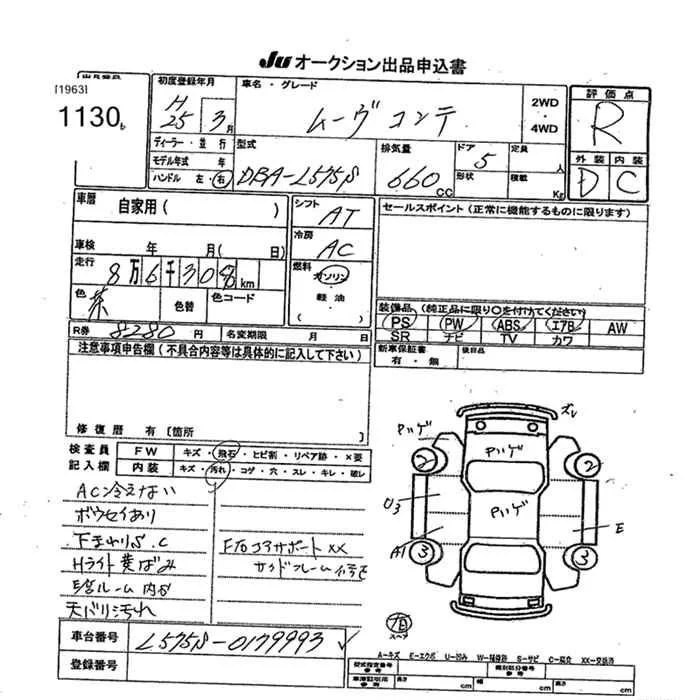 Ju オークション出品申込書
[1963]
1130
初度登録年月
車名・グレード
2WD
・
4WD
評価点
H
25
3月
ムーヴコンテ
R
ディーラー・並行
型式
排気量
ドア
定員
人
外装
内装
モデル年式 年
DBA-L575S
660cc
5
形状
積載
Kg
D
C
ハンドル 左・右
車歴
自家用( )
シフト
AT
セールスポイント(正常に機能するものに限ります)
冷房
AC
車検
年 月( 日)
走行
8万6千308km
燃料
ガソリン
・
軽油
・
( )
色
茶
色替
色コード
装備品(純正品に限り○を付けてください)
PS PW ABS エアB AW
SR ナビ TV カワ
R券
8280円
名変期限 月 日
新車保証書
有・無
後日品
注意事項申告欄(不具合内容等は具体的に記入して下さい)
修復歴 有[箇所 ]
検査員
記入欄
FW
キズ・飛石・ヒビ割・リペア跡・×要
内装
キズ・汚れ・コゲ・穴・スレ・キレ・破レ
AC冷えない
ボウセイあり
下まわりS.C
Hライト黄ばみ
天バリ汚れ
コアサポートXX
ズレ
Pハゲ
Pハゲ
Pハゲ
2
2
U3
E
A1
3
3
車台番号
L575S-0179993
登録番号
A-キズ E-エクボ U-凹み W-補修跡 S-サビ C-腐食 XX-交換済
型式指定番号
参考
類別区分番号
参考
車庫証明用
参考
高さ cm
幅 cm
長さ cm